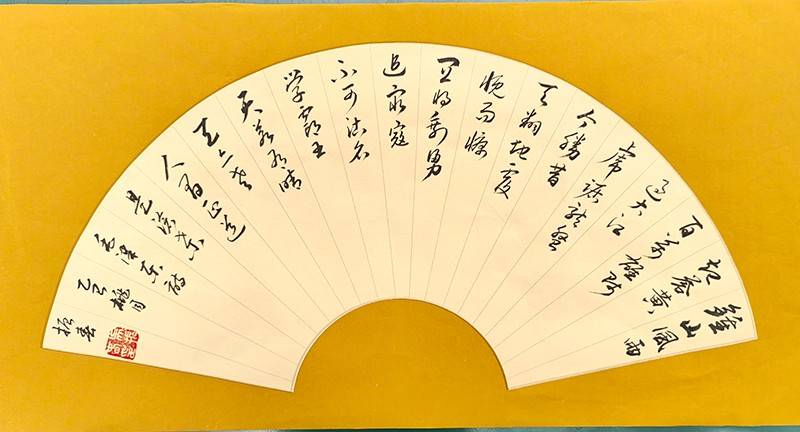 鐘山風雨
起蒼黄
百萬雄师
过大江
虎踞龙盤
今勝昔
天翻地覆
慨而慷
宜将剩勇
追窮寇
不可沽名
学霸王
天若有情
天亦老
人间正道
是滄桑
毛澤东詩
乙巳桃月
振春